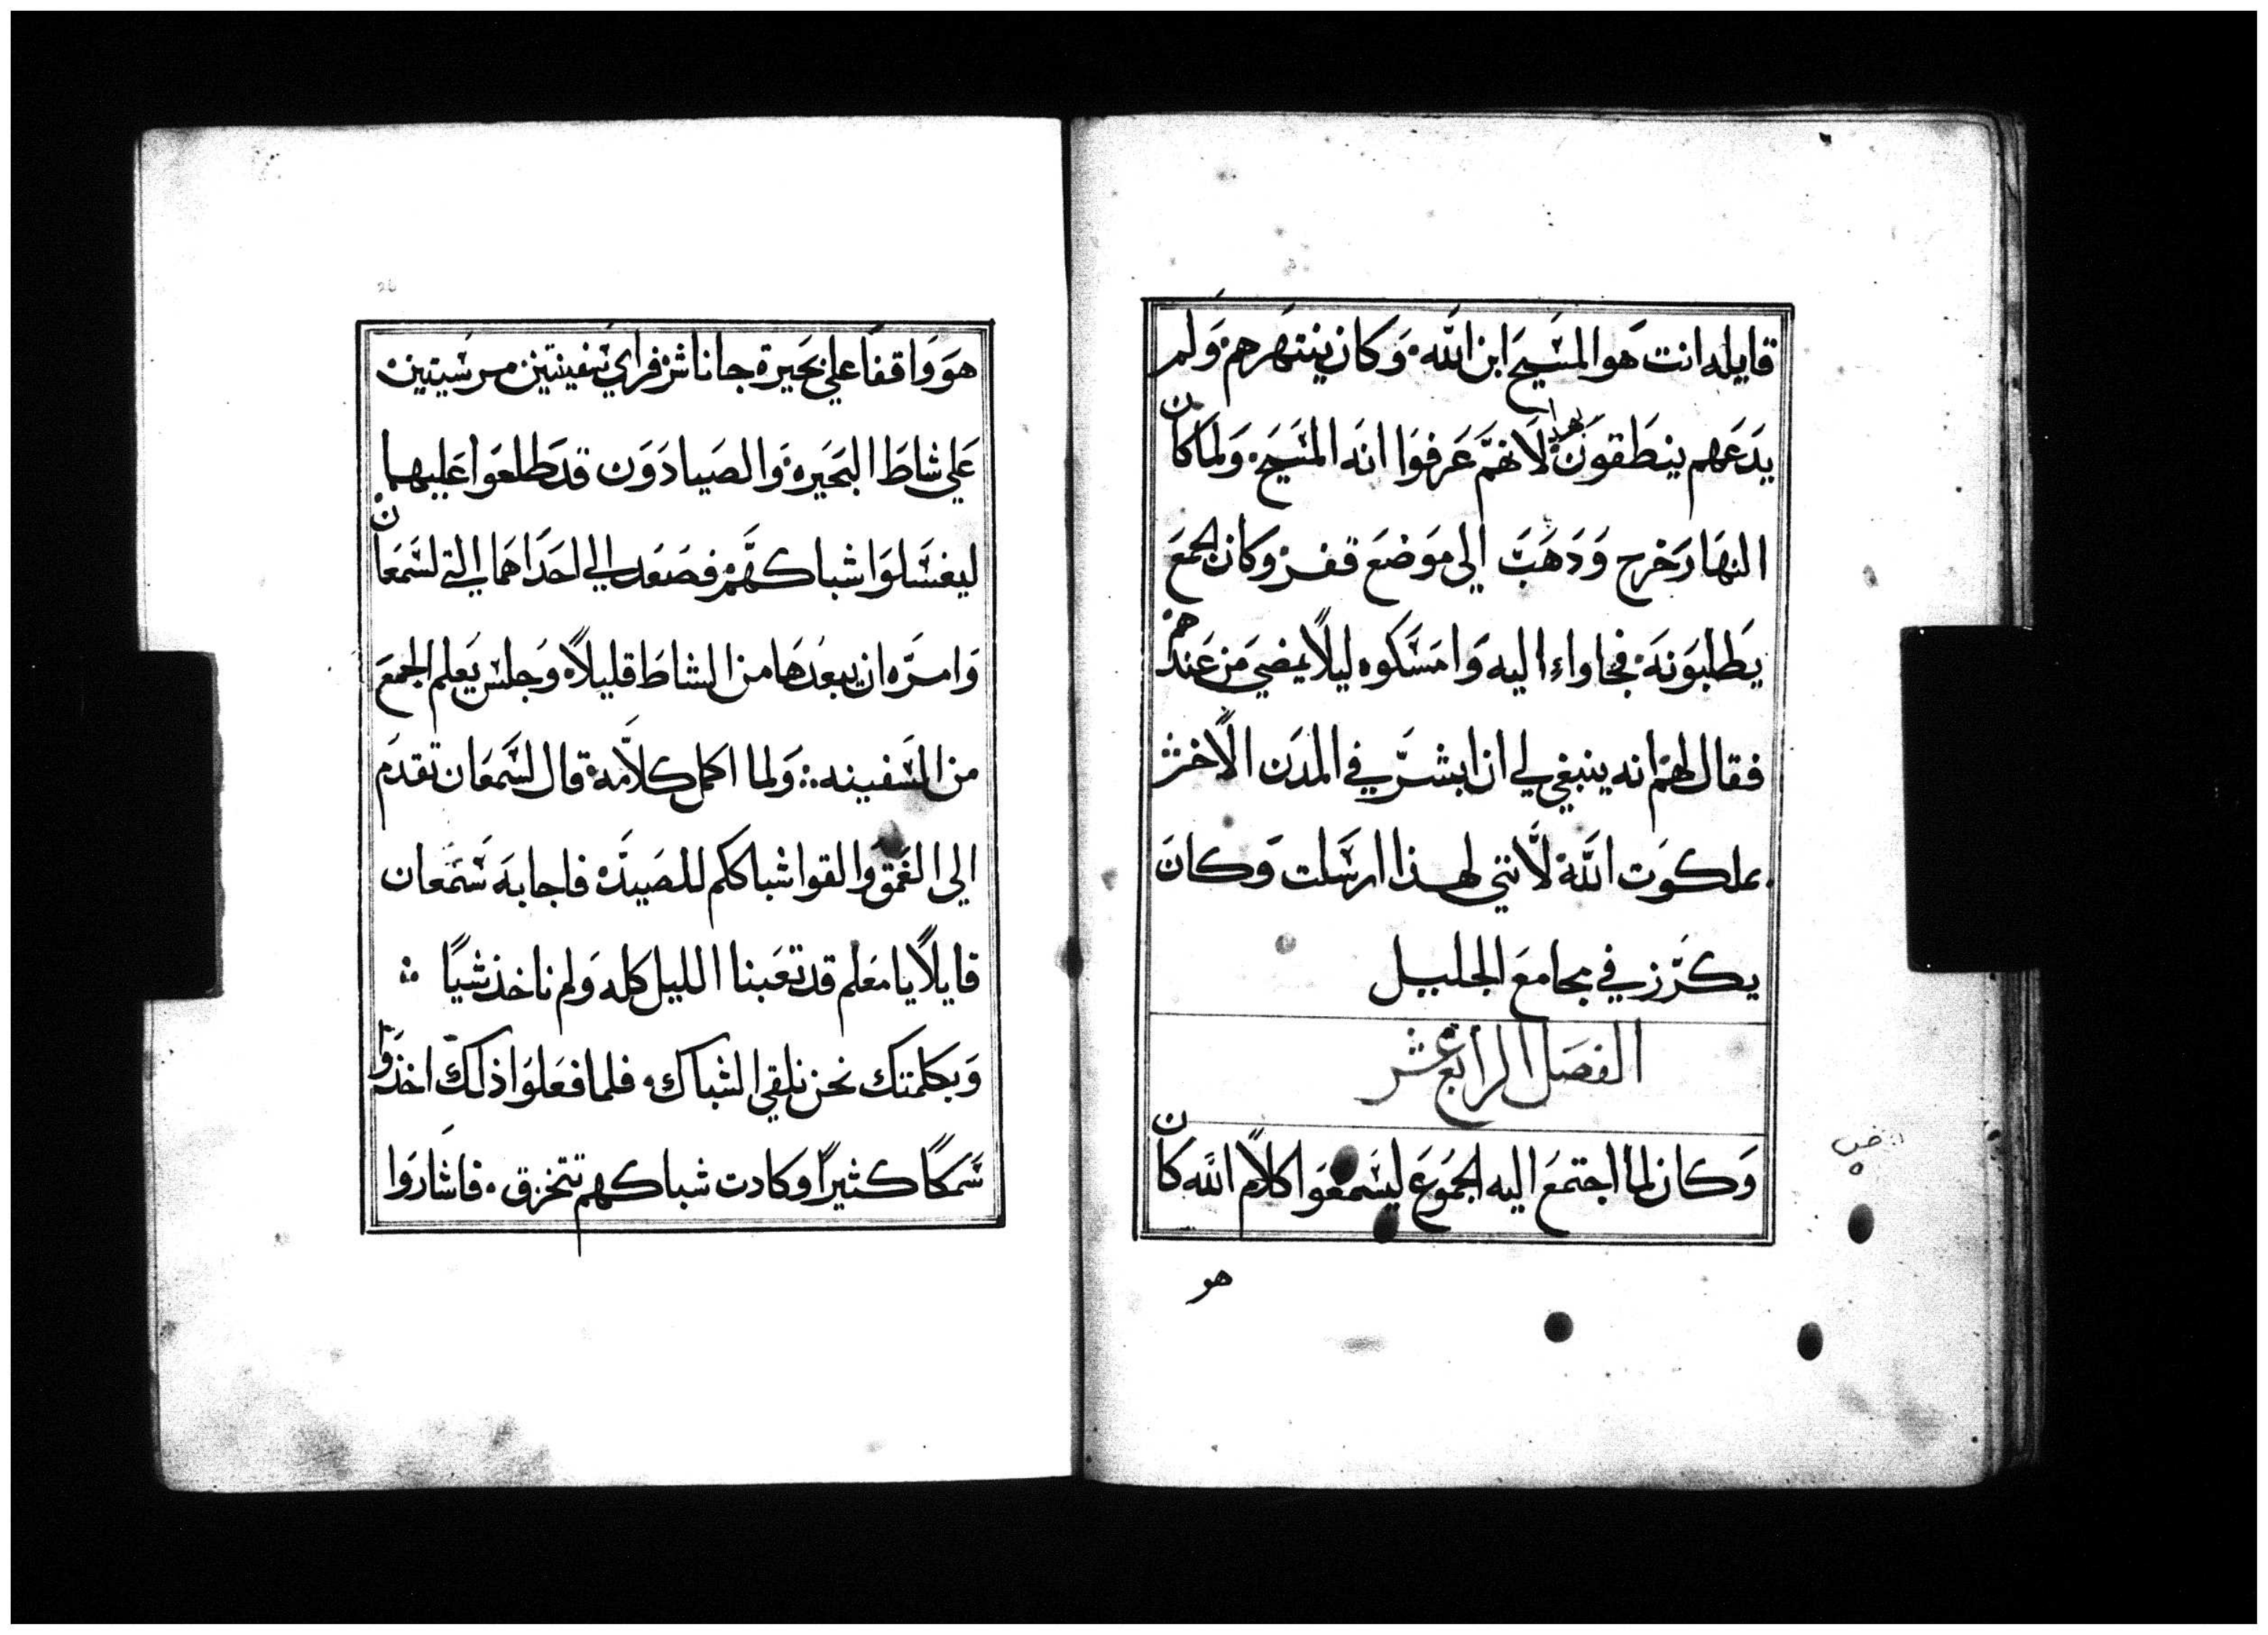 قايله انت هو المسيح ابن الله وكان ينتهرهم ولم
يدعهم ينطقون بهذا لانهم عرفوا انه المسيح ولما كان
النهار خرج ودهب الي موضع قفر وكان الجمع
يطلبونه فجاواء اليه وامسكوه ليلا يمضي من عندهم
فقال لهم انه ينبغي لي ان ابشر في المدن الاخر
بملكوت الله لانني لهذا ارسلت وكان
يكرز في مجامع الجليل
الفصل الرابع عشر
وكان لما اجتمع اليه الجموع ليسمعوا كلام الله كان
هو
هو واقفا علي بحيرة جاناشر فراي سفينتين مرسيتين
علي شاط البحيره والصيادون قد طلعوا عليهما
ليغسلوا شباكهم فصعد الي احداهما التي لسمعان
وامره ان يبعدها من الشاط قليلا وجلس يعلم الجمع
من السفينه ولما اكمل كلامه قال لسمعان تقدم
الي الغمق والقوا شباككم للصيد فاجابه سمعان
قايلا يا معلم قد تعبنا الليل كله ولم ناخذ شيا
وبكلمتك نحن نلقي الشباك فلما فعلوا ذلك اخذوا
سمكا كثيرا وكادت شباكهم تتخرق فاشاروا